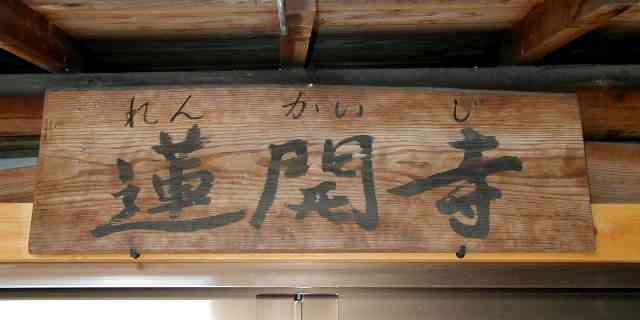 れん かい じ
蓮開寺